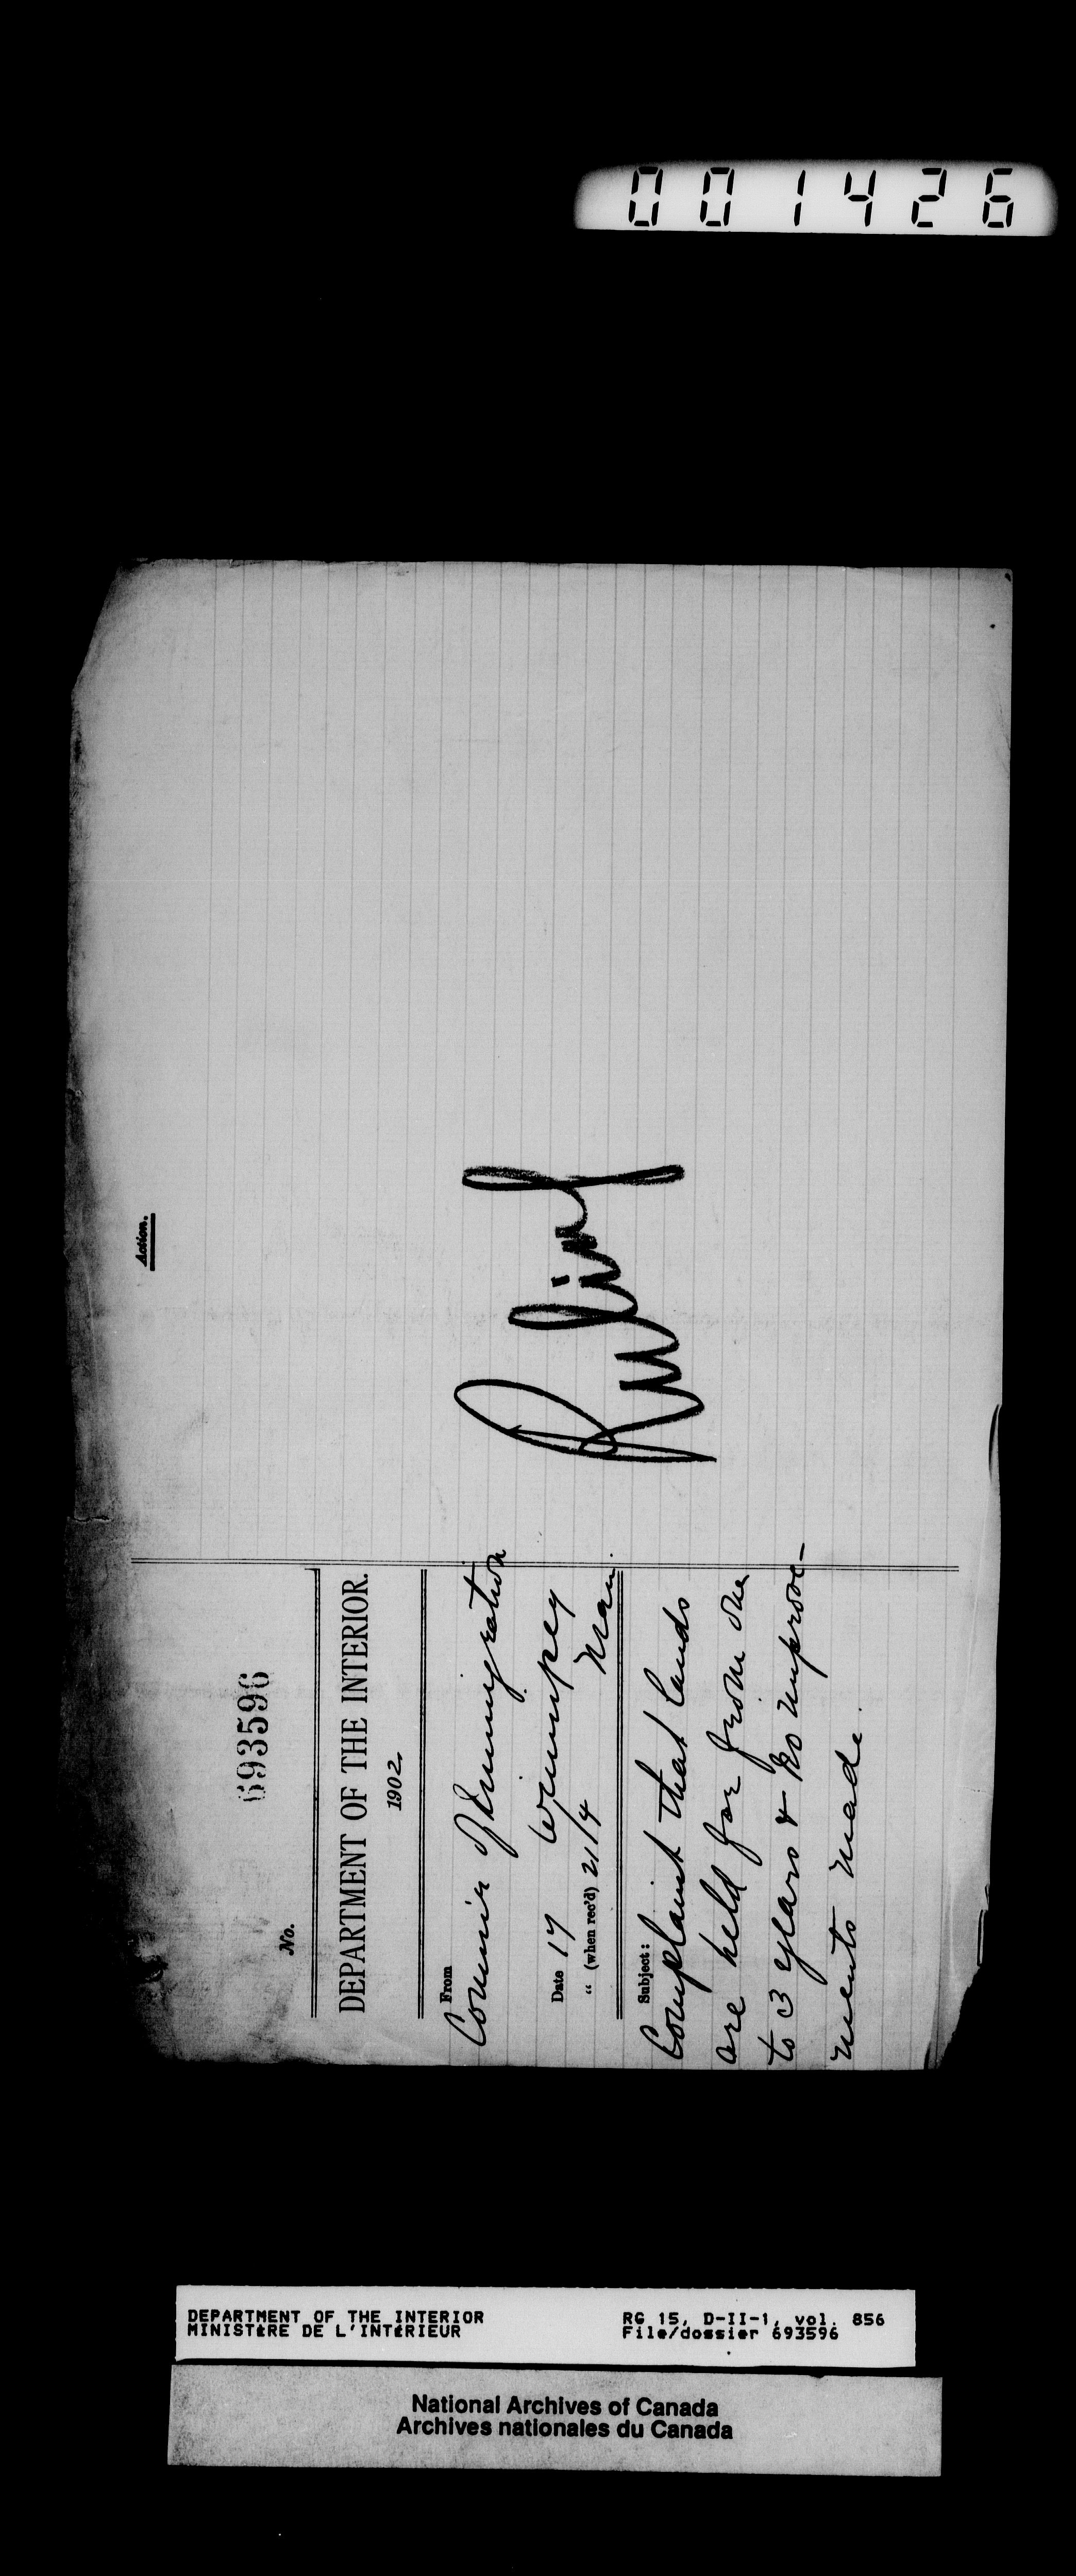 001426
Action.
Ruling
No. 693596
DEPARTMENT OF THE INTERIOR.
1902
From
Commr of Immigration
Date 17 Winnipeg
" (when rec'd) 21/4 Man.
Subject:
Complaint that lands
are held for from one
to 3 years & no improve-
ments made.
DEPARTMENT OF THE INTERIOR
MINISTÈRE DE L'INTÉRIEUR
RG 15, D-II-1, vol. 856
File/dossier 693596
National Archives of Canada
Archives nationales du Canada